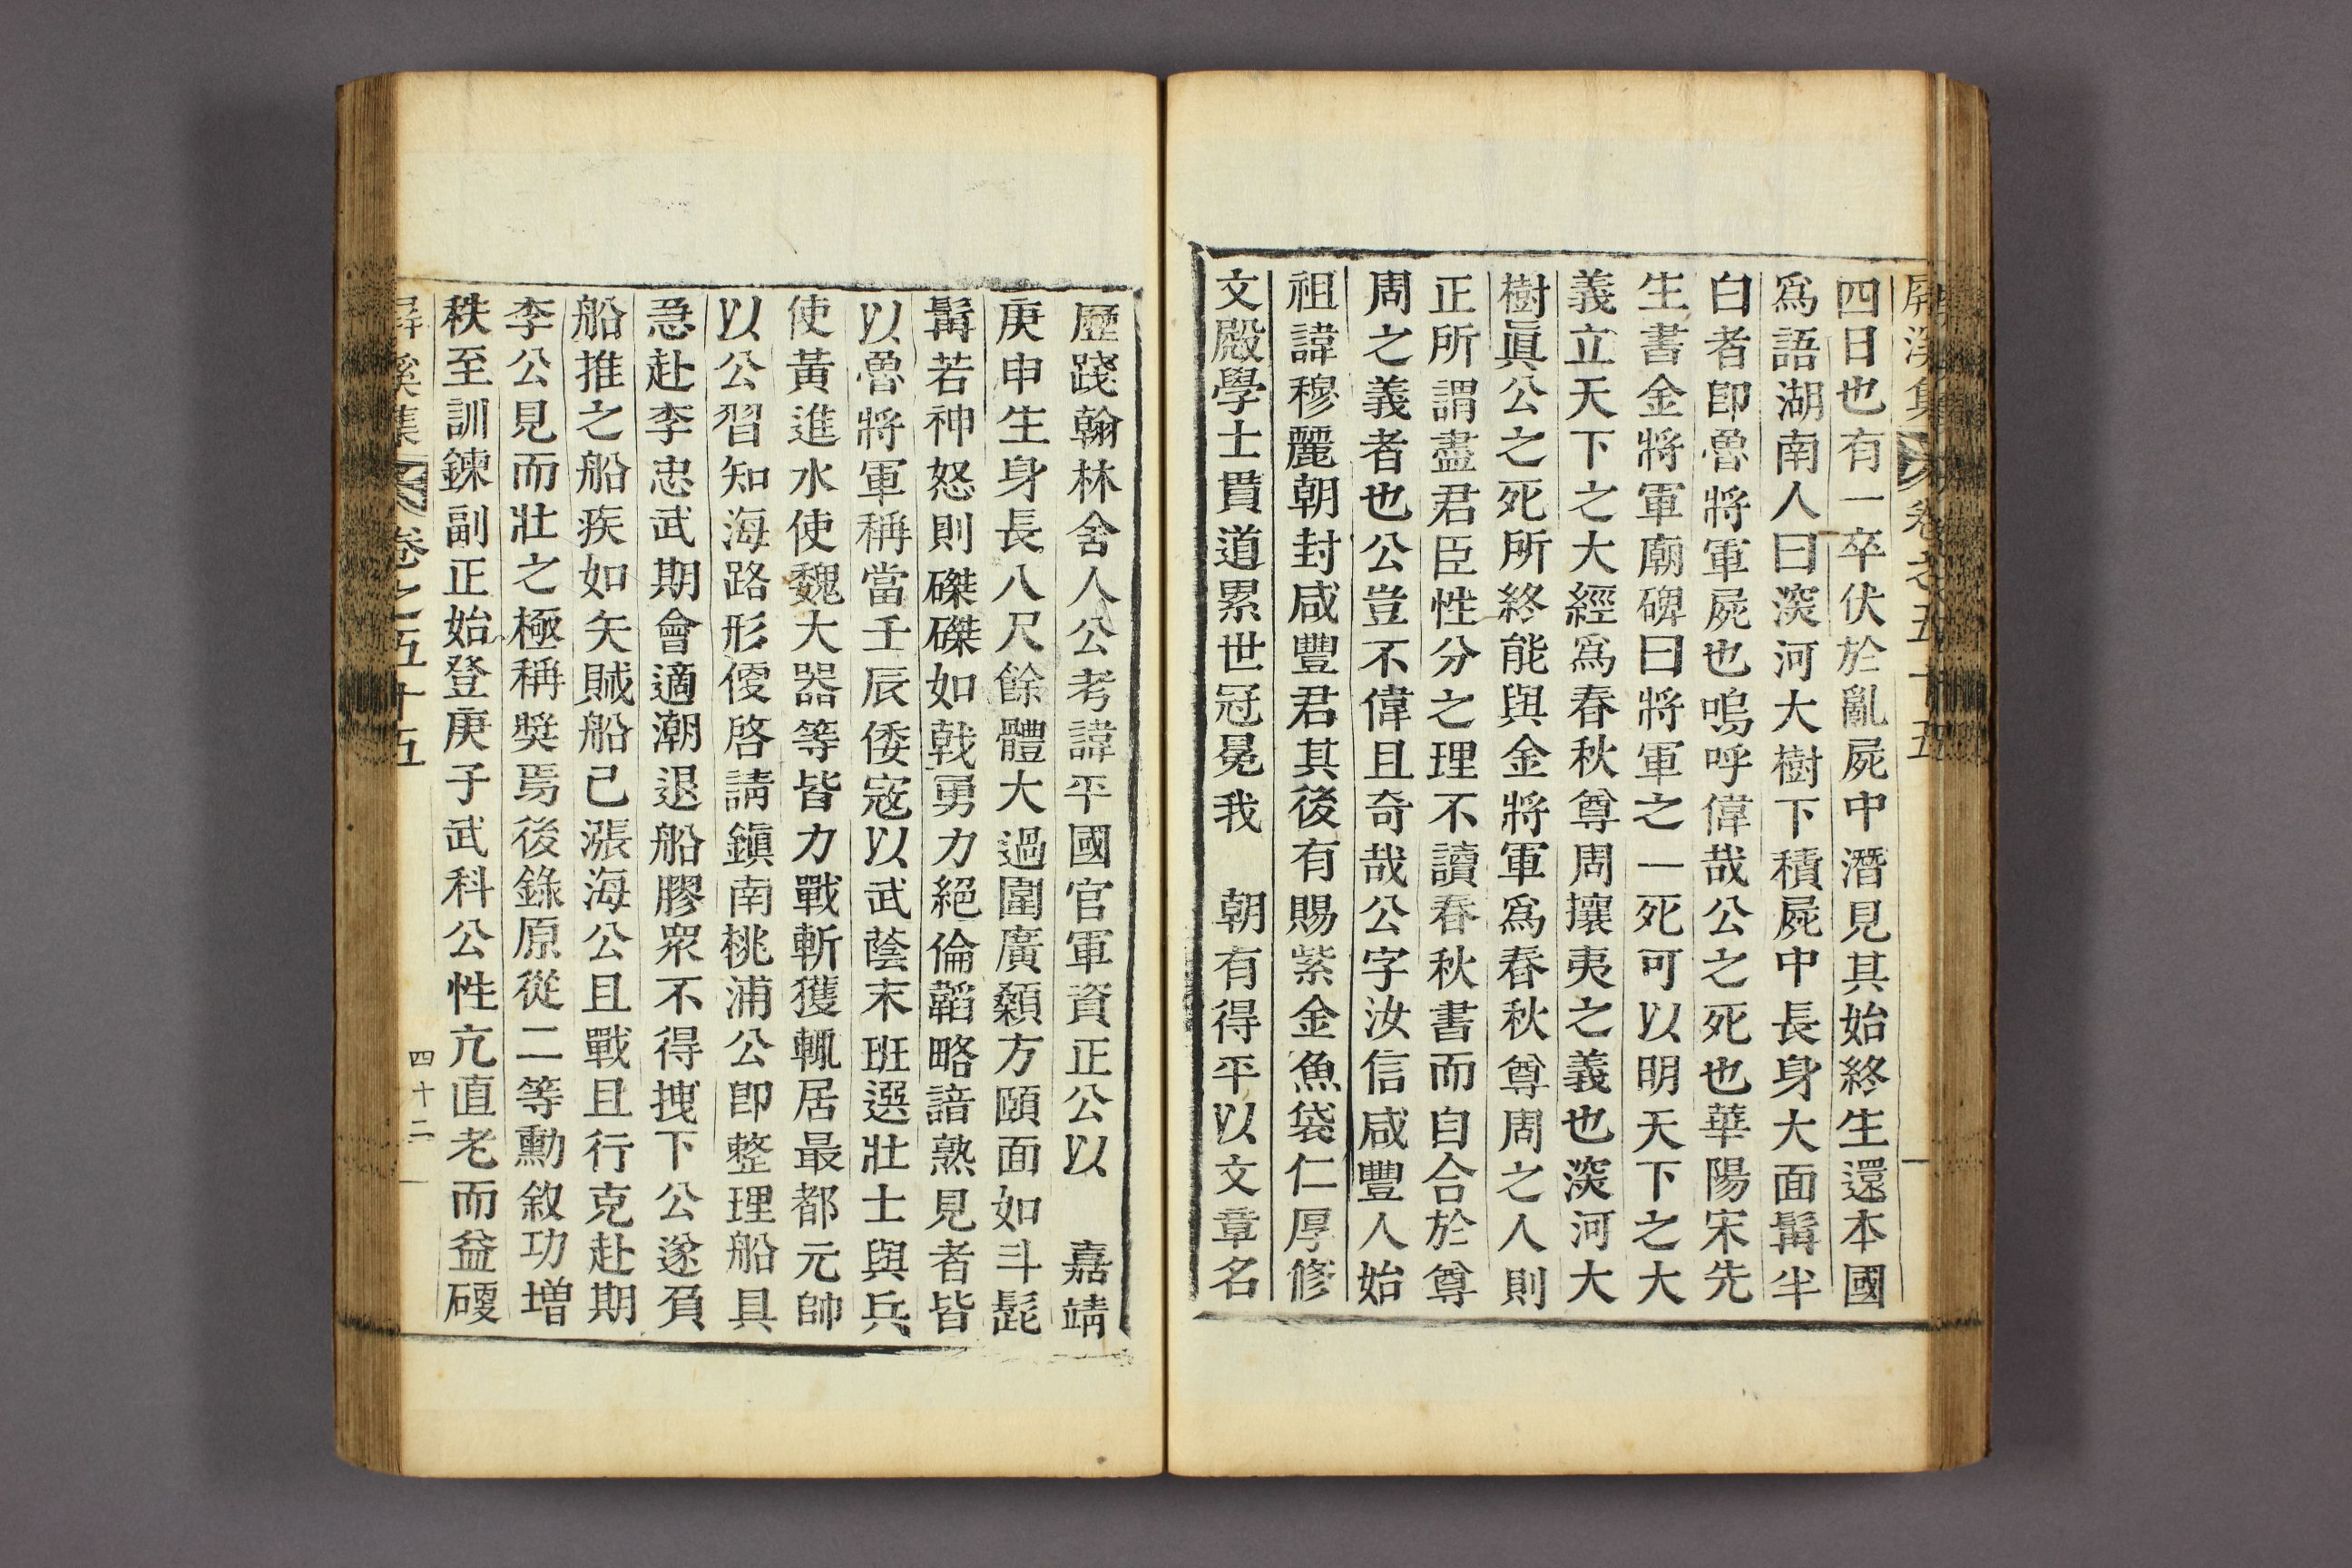 屛溪集 卷之五十五
四日也有一卒伏於亂屍中潛見其始終生還本國
爲語湖南人曰深河大樹下積屍中長身大面髯半
白者卽魯將軍屍也嗚呼偉哉公之死也華陽宋先
生書金將軍廟碑曰將軍之一死可以明天下之大
義立天下之大經爲春秋尊周攘夷之義也深河大
樹眞公之死所終能與金將軍爲春秋尊周之人則
正所謂盡君臣性分之理不讀春秋書而自合於尊
周之義者也公豈不偉且奇哉公字汝信咸豐人始
祖諱穆麗朝封咸豐君其後有賜紫金魚袋仁厚修
文殿學士貫道累世冠冕我 朝有得平以文章名
歷踐翰林舍人公考諱平國官軍資正公以 嘉靖
庚申生身長八尺餘體大過圍廣顙方頤面如斗髭
髯若神怒則磔磔如戟勇力絕倫韜略諳熟見者皆
以魯將軍稱當壬辰倭寇以武蔭末班選壯士與兵
使黃進水使魏大器等皆力戰斬獲輒居最都元帥
以公習知海路形便啓請鎭南桃浦公卽整理船具
急赴李忠武期會適潮退船膠衆不得拽下公遂負
船推之船疾如矢賊船已漲海公且戰且行克赴期
李公見而壯之極稱奬焉後錄原從二等勳敘功增
秩至訓鍊副正始登庚子武科公性亢直老而益硬
屛溪集 卷之五十五 四十二